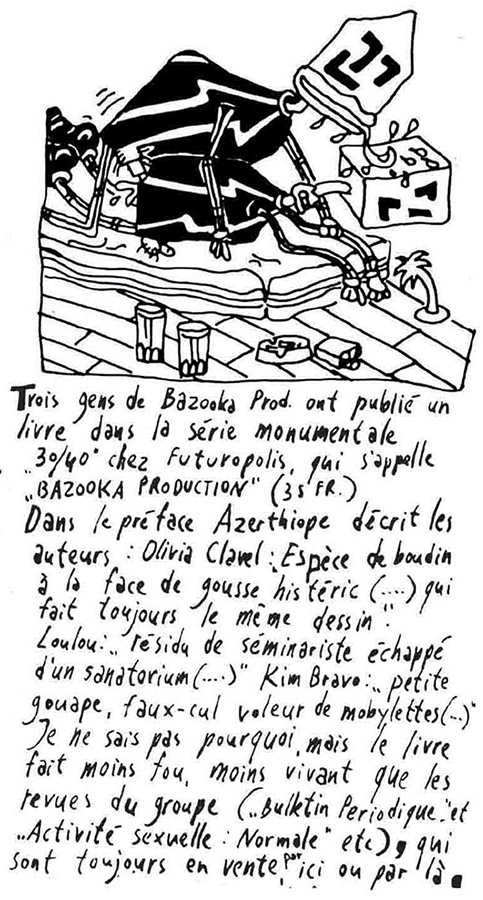 Trois gens de Bazooka Prod. ont publié un
livre dans la série monumentale
„30/40" chez Futuropolis, qui s'appelle
„BAZOOKA PRODUCTION" (35 FR.)
Dans le préface Azerthiope décrit les
auteurs : Olivia Clavel : „Espèce de boudin
à la face de gousse histéric (....) qui
fait toujours le même dessin".
Loulou: „résidu de séminariste échappé
d'un sanatorium (....)" Kim Bravo: „petite
gouape, faux-cul voleur de mobylettes (...)"
Je ne sais pas pourquoi, mais le livre
fait moins fou, moins vivant que les
revues du groupe („Bulletin Periodique" et
„Activité sexuelle : Normale" etc), qui
sont toujours en vente par ici ou par là.